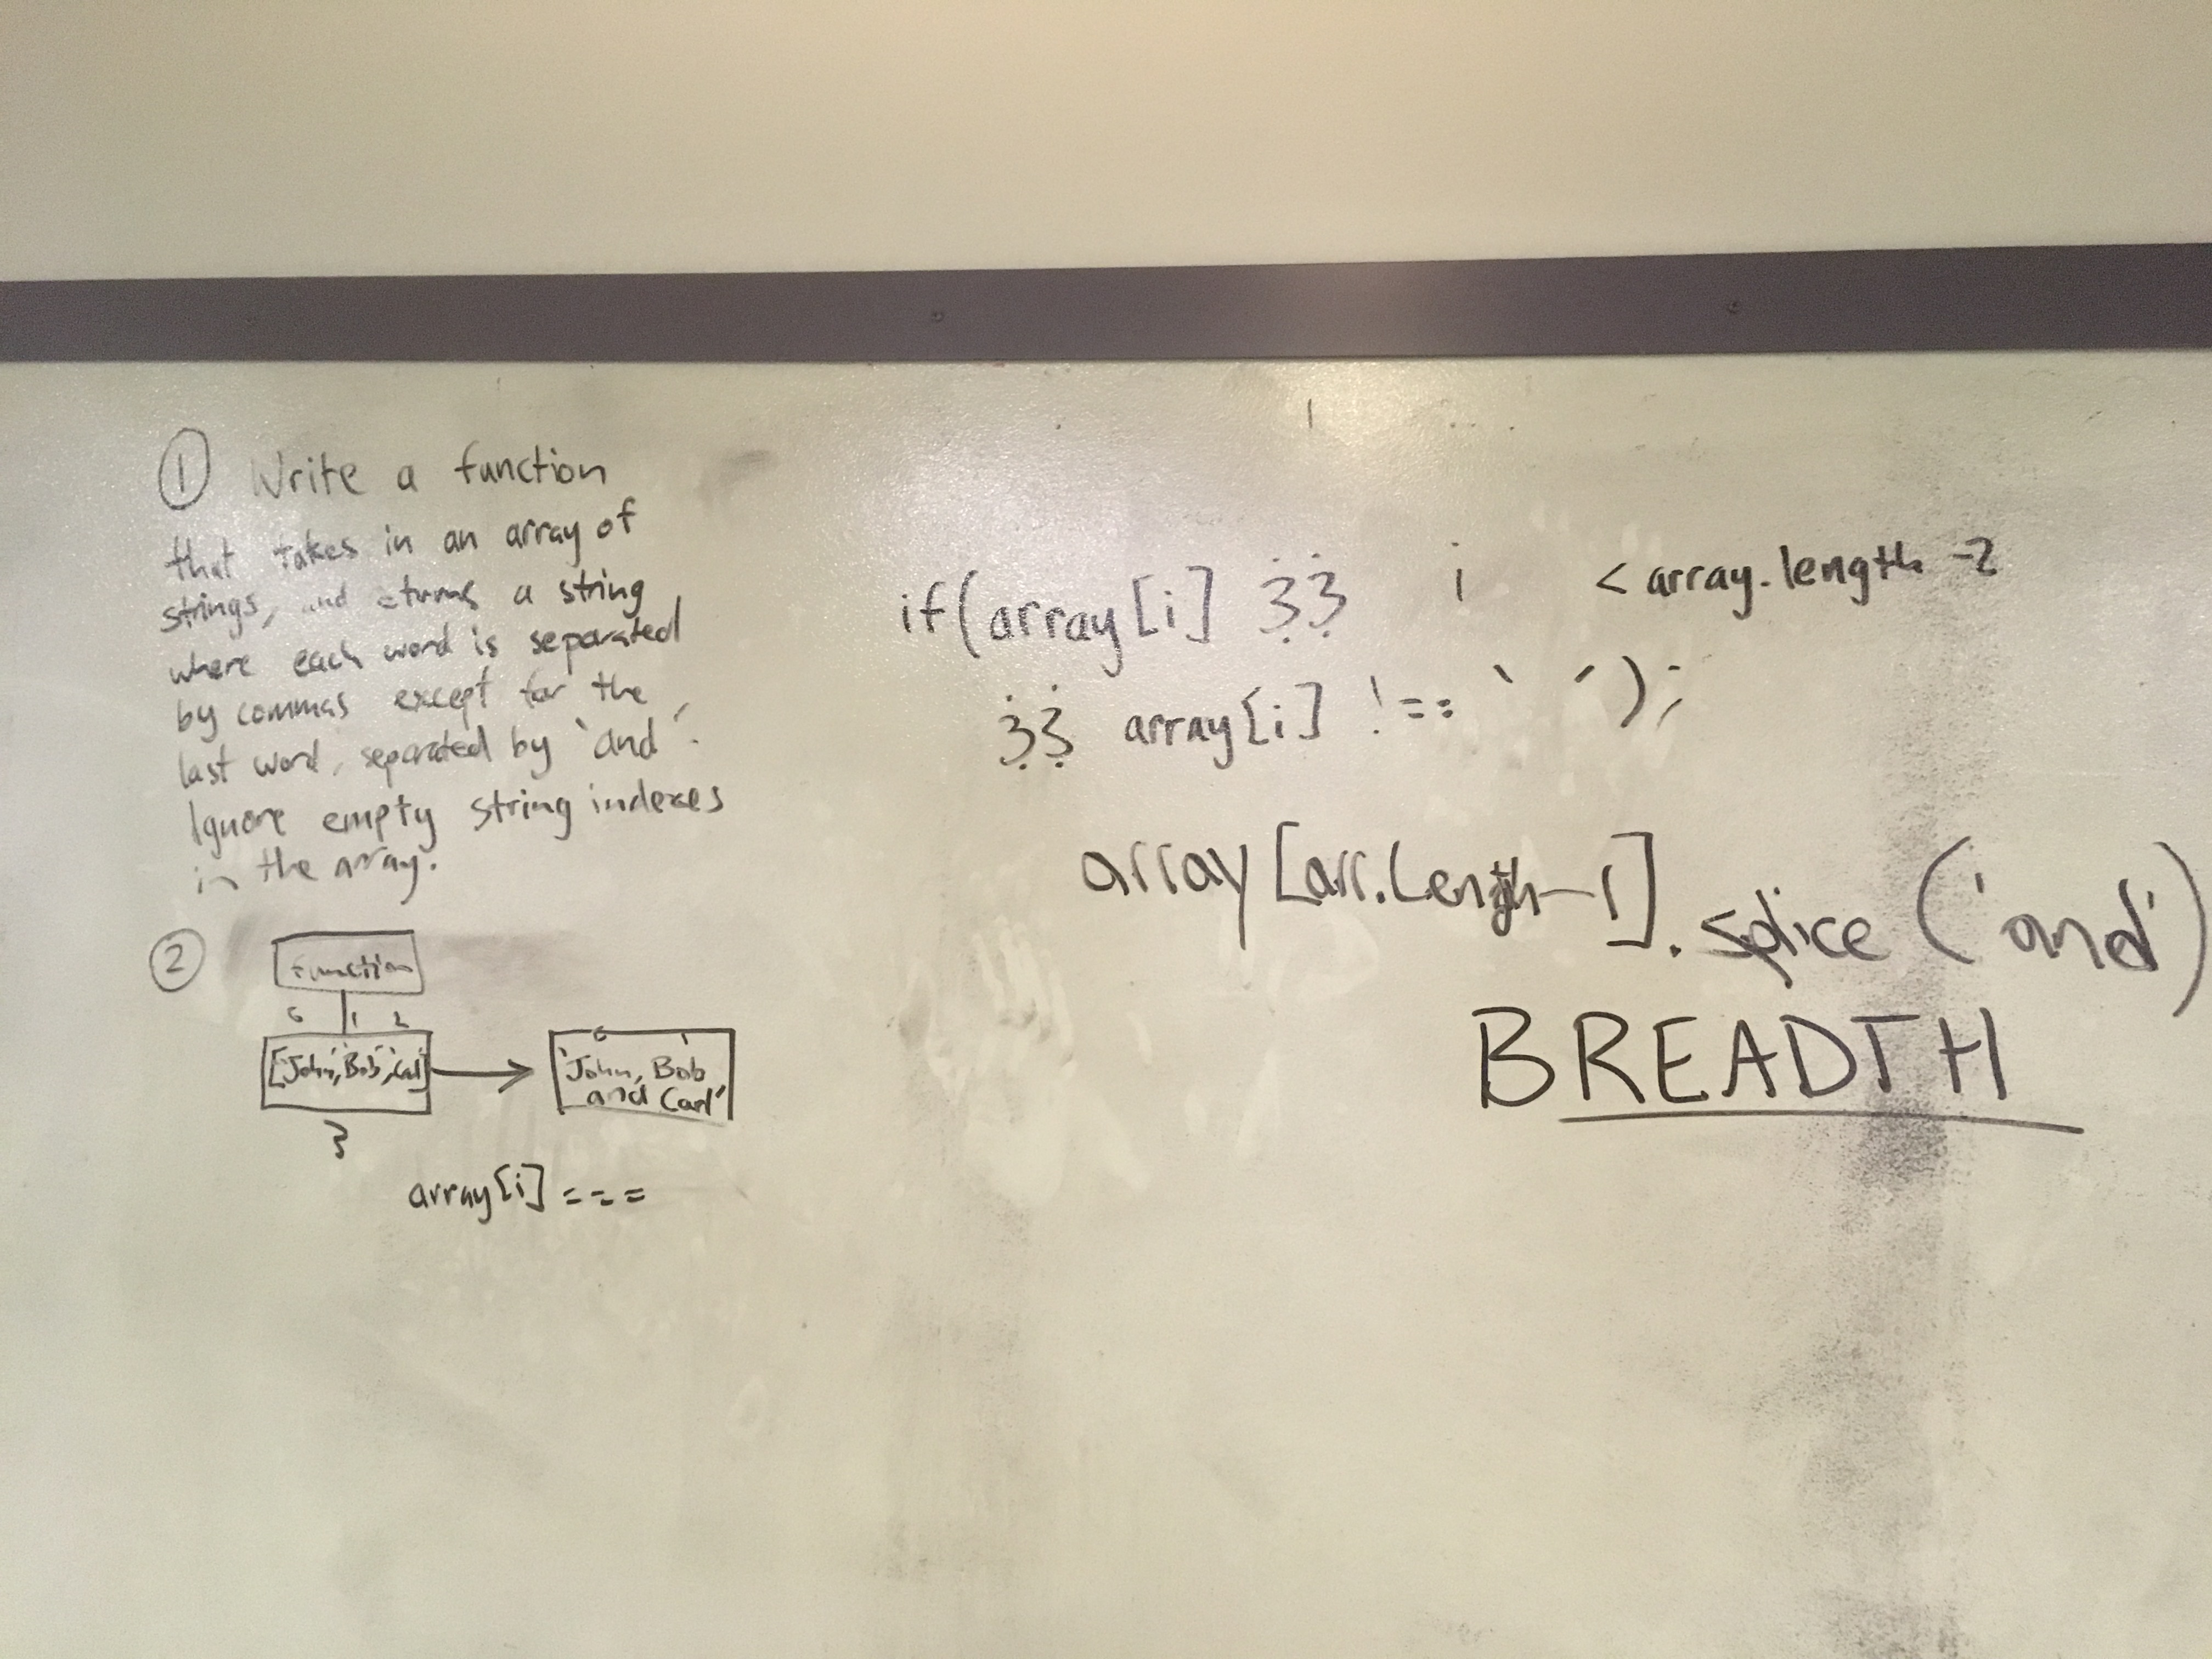 ① Write a function
that takes in an array of
strings, and returns a string
where each word is separated
by commas except for the
last word, separated by 'and'.
Ignore empty string indexes
in the array.
②
function
0 1 2
['John','Bob','Carl']
3
0 1
'John, Bob
and Carl'
array[i] ===
if(array[i] && i < array.length -2
&& array[i] !== ' ');
array[arr.length-1].splice('and')
BREADTH